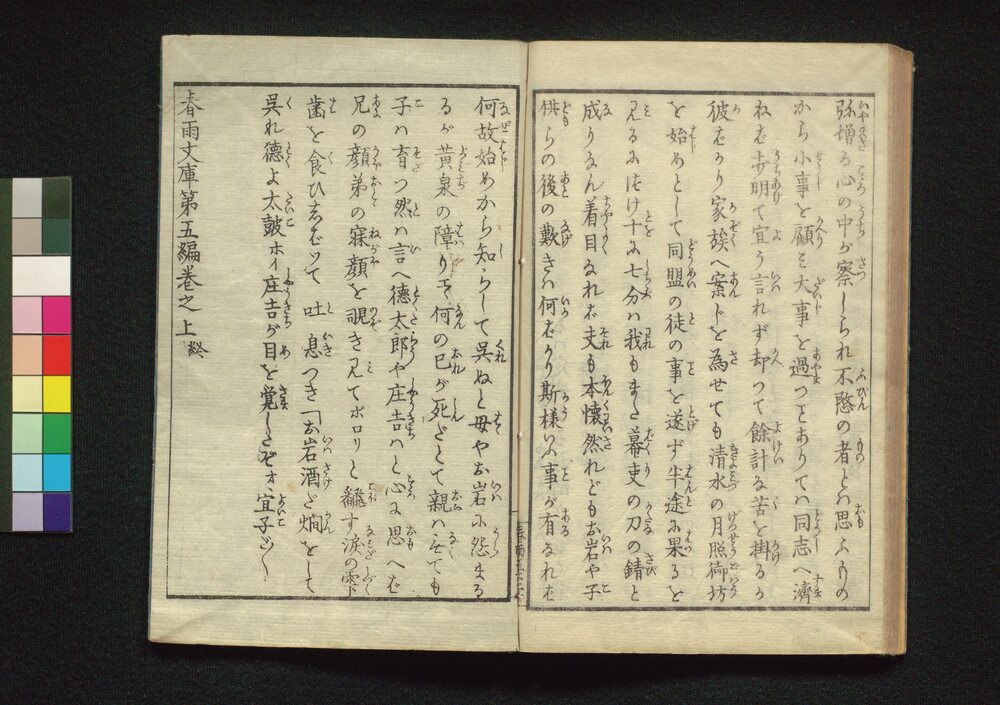 弥増る心の中が察しられ不愍の者とは思ふものの
から小事を顧み大事を過つことありては同志へ済
ねば歩明て宜う言れず却つて餘計な苦を掛るか
彼ばかり家族へ案じを為せても清水の月照御坊
を始めとして同盟の徒の事を遂ず半途に果るを
見るにつけ十に七分は我もまた幕吏の刀の錆と
成りなん着目なれば夫も本懐然れどもお岩や子
供らの後の歎きは何ばかり斯様いふ事が有るなれば
何故始めから知らして呉ぬと母やお岩に怨まる
るが黄泉の障り而て何の己が死だとて親はなくても
子は育つ然は言へ德太郎や庄吉はと心に思へば
兄の顔弟の寐顔を覗き見てポロリと飜す涙の雫
歯を食ひしばつて吐息つき「お岩酒ど燗をして
呉れ德よ太鼓ホイ庄吉が目を覚したぞオヽ宜子だ〳〵
春雨文庫第五編巻之上 終